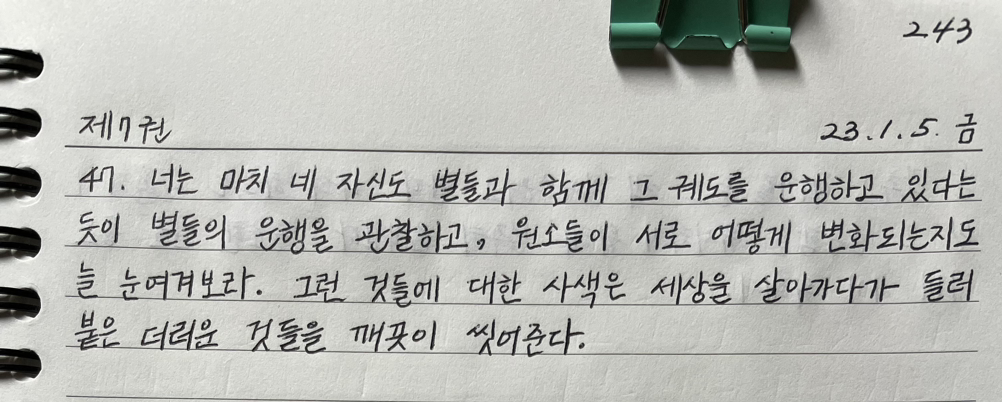 243
제7권 23.1.5. 금
47. 너는 마치 네 자신도 별들과 함께 그 궤도를 운행하고 있다는
듯이 별들의 운행을 관찰하고, 원소들이 서로 어떻게 변화되는지도
늘 눈여겨보라. 그런 것들에 대한 사색은 세상을 살아가다가 들러
붙은 더러운 것들을 깨끗이 씻어준다.